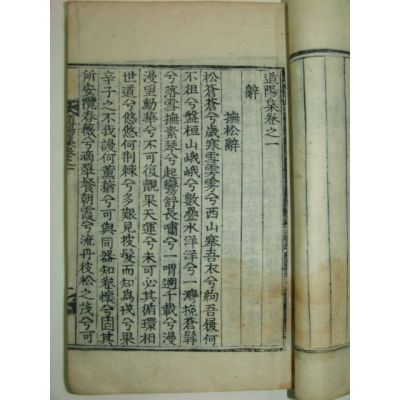 道陽集卷之一
辭
撫松辭
松蒼蒼兮歲寒雪雰雰兮西山裹吾衣兮絢吾履何
不徂兮盤桓山峨峨兮敦疊水洋洋兮一灣撫蒼髯
兮落雪撫素琴兮起鸞舒長嘯兮一喟遡千載兮漫
漫望勳華兮不可復觀果天運兮未可必其循環相
世道兮悠悠何荆棘兮多艱見披髮而知爲戎兮果
辛子之不我謾何薰蕕兮可與同器知卷懷兮固其
所安攬春薇兮滴翠餐朝霞兮流丹彼松之茂兮可